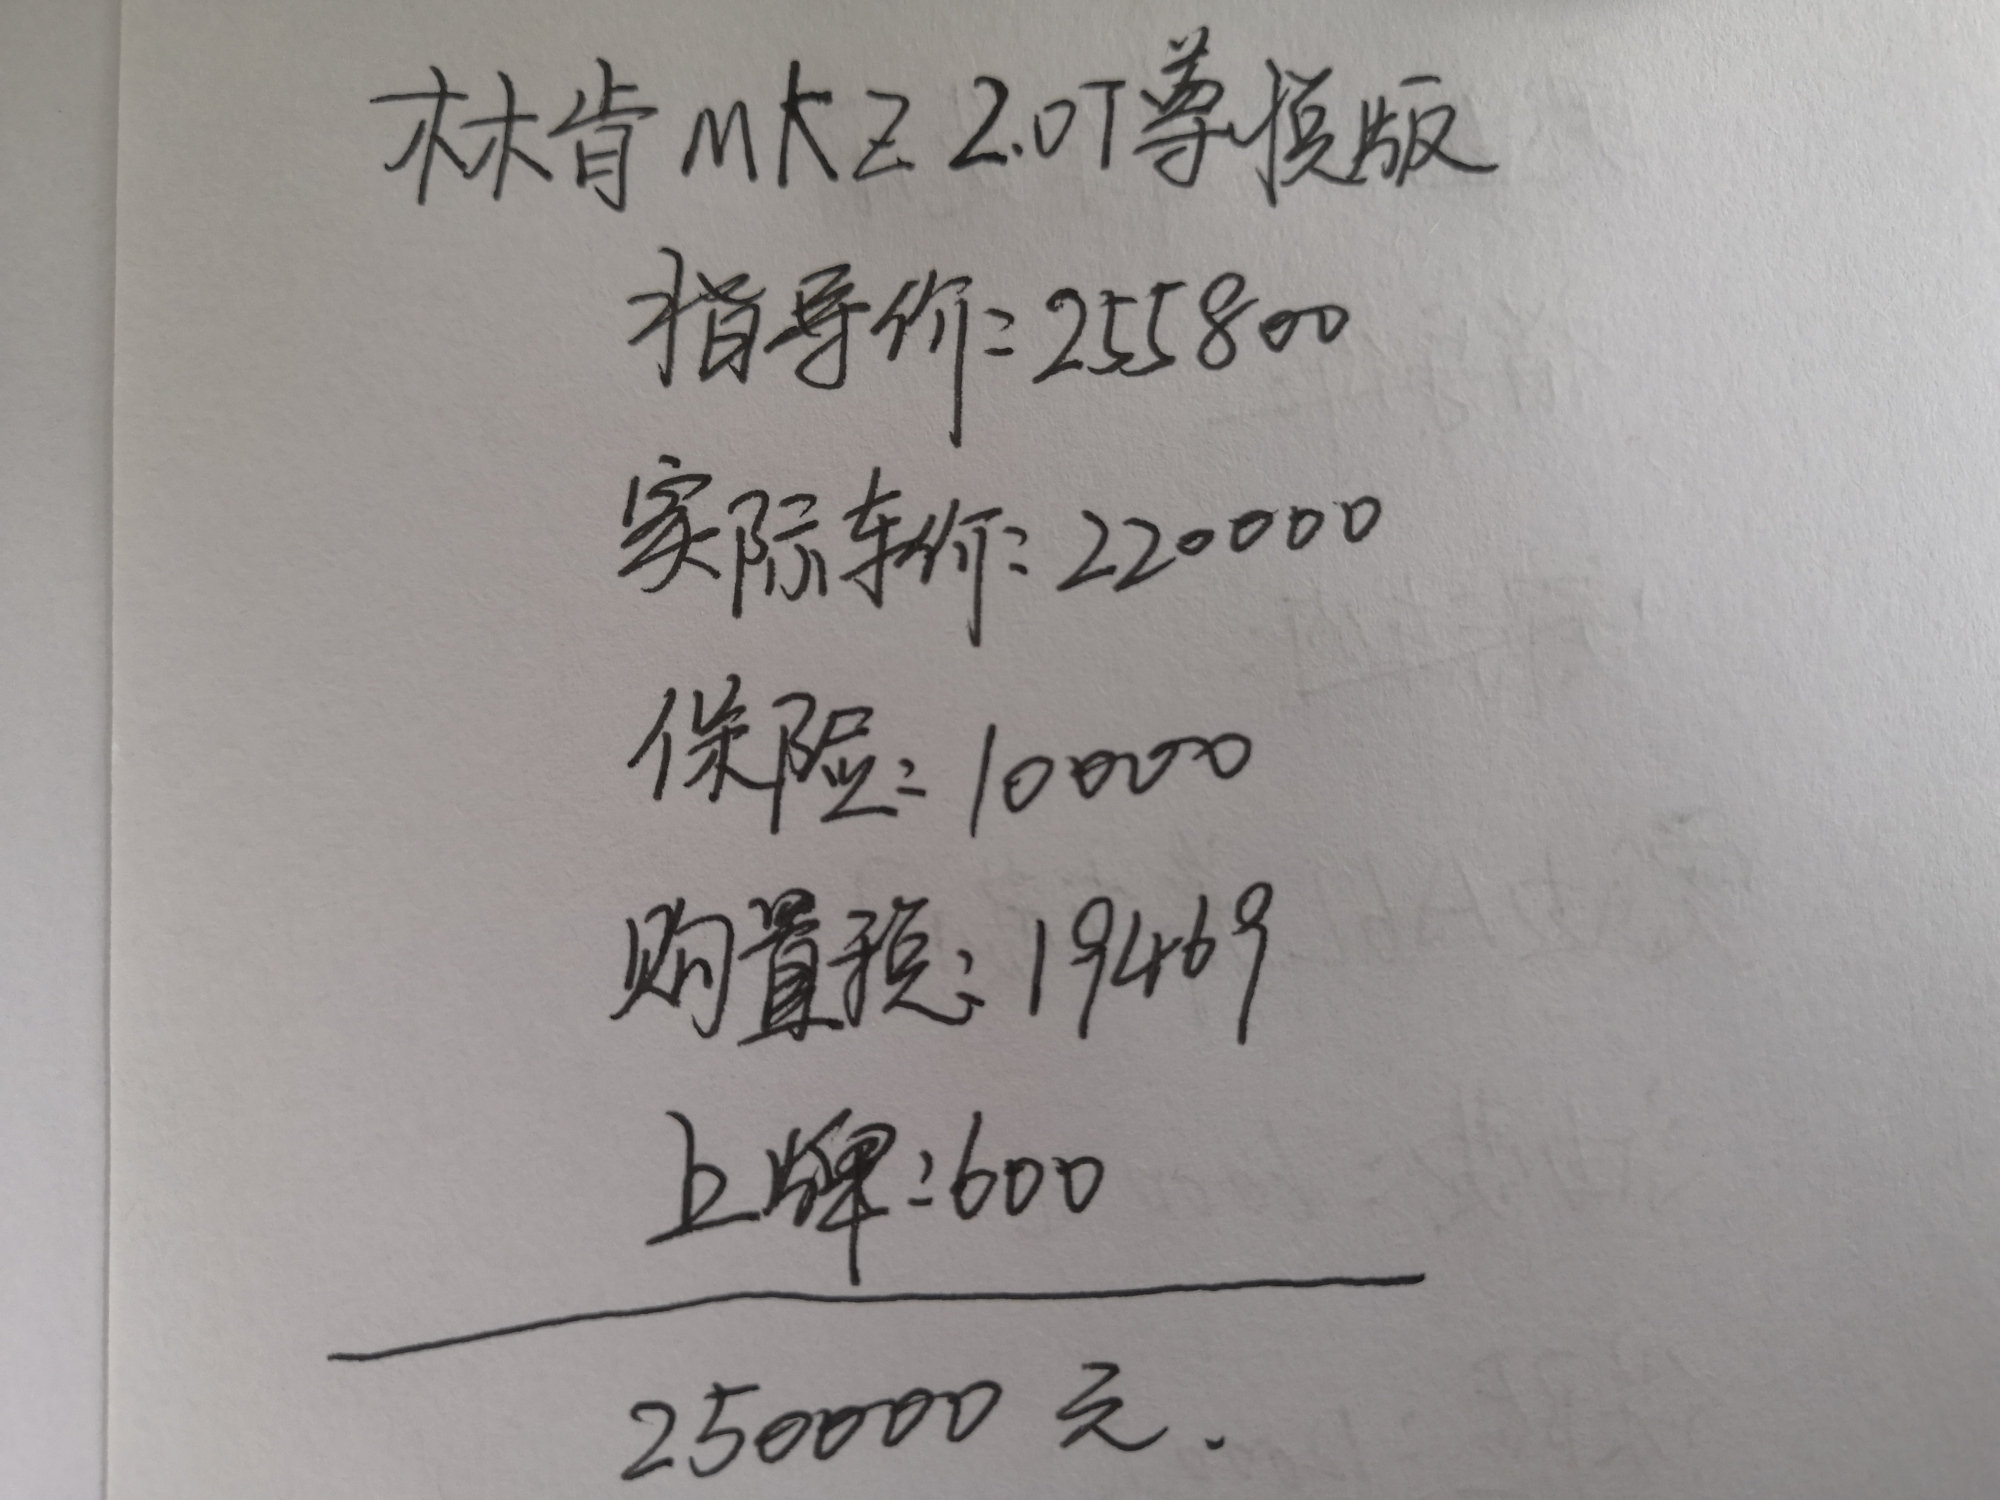 林肯MKZ 2.0T尊悦版
指导价:255800
实际车价:220000
保险:10000
购置税:19469
上牌:600
250000元.